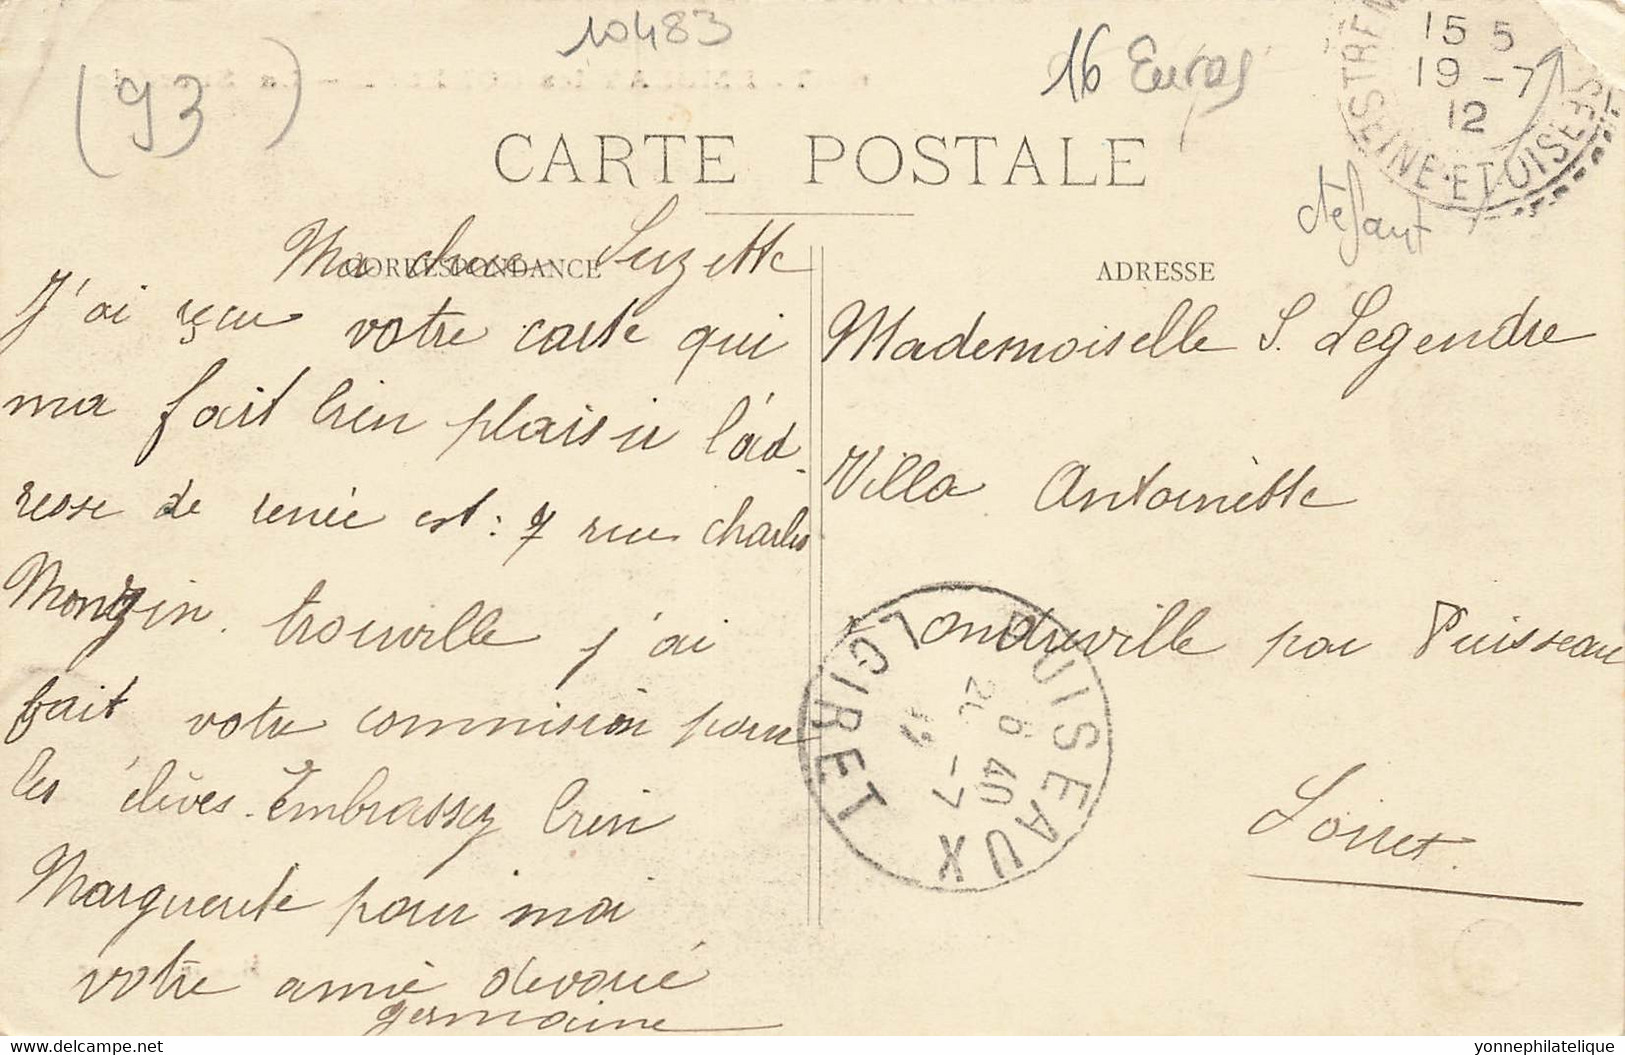 10483
(93)
16 Euros
15 5
19 -7
12
SEINE-ET-OISE
défaut
CARTE POSTALE
CORRESPONDANCE
ADRESSE
Ma chère Suzette
J'ai reçu votre carte qui
ma fait bien plaisir l'ad-
resse de renée est : 7 rue charles
Monzin. trouville j'ai
fait votre commision pour
les élèves. Embrassez bien
Marguerite pour moi
votre amie dévoué
germaine
Mademoiselle S. Legendre
Villa Antoinette
Ondreville par Puisseau
Loiret
PUISEAUX
LOIRET
6 40
20 -7
12
yonnephilatelique
yonnephilatelique.com